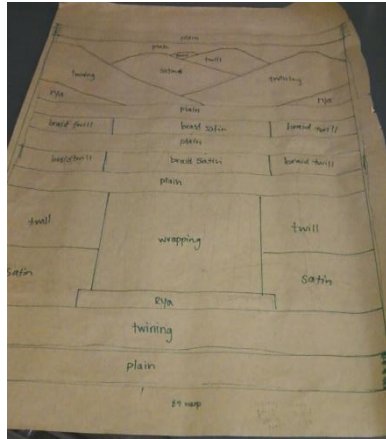 plain
plain
twill
twining
satine
twining
rya
rya
plain
braid twill braid satin braid twill
plain
braid twill braid satin braid twill
plain
twill wrapping twill
satin satin
Rya
twining
plain
84 warp